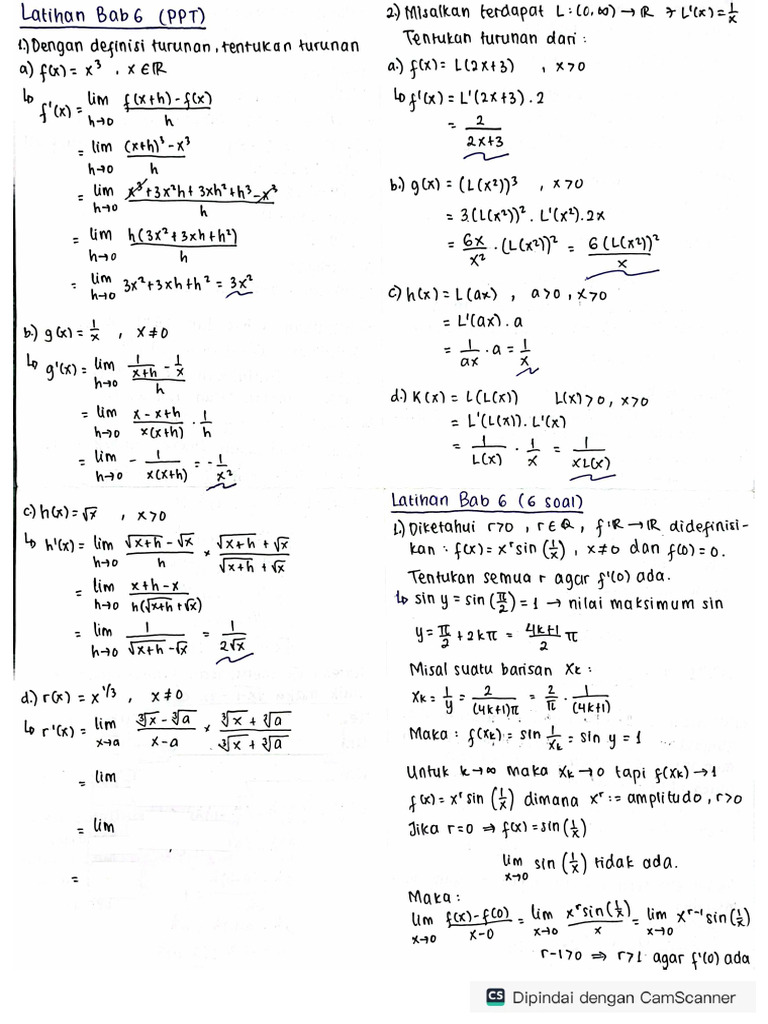 Latihan Bab 6 (PPT)
1.) Dengan definisi turunan, tentukan turunan
a) f(x) = x³ , x ∈ ℝ
↳ f'(x) = lim h→0 (f(x+h) - f(x))/h
= lim h→0 ((x+h)³ - x³)/h
= lim h→0 (x³ + 3x²h + 3xh² + h³ - x³)/h
= lim h→0 h(3x² + 3xh + h²)/h
= lim h→0 3x² + 3xh + h² = 3x²
b.) g(x) = 1/x , x ≠ 0
↳ g'(x) = lim h→0 (1/(x+h) - 1/x)/h
= lim h→0 (x - x+h)/(x(x+h)) · 1/h
= lim h→0 - 1/(x(x+h)) = - 1/x²
c.) h(x) = √x , x > 0
↳ h'(x) = lim h→0 (√(x+h) - √x)/h × (√(x+h) + √x)/(√(x+h) + √x)
= lim h→0 (x+h-x)/(h(√(x+h) + √x))
= lim h→0 1/(√(x+h) - √x) = 1/(2√x)
d.) r(x) = x^(1/3) , x ≠ 0
↳ r'(x) = lim x→a (∛x - ∛a)/(x-a) × (∛x + ∛a)/(∛x + ∛a)
= lim
= lim
=
2.) Misalkan terdapat L : (0,∞) → ℝ ∋ L'(x) = 1/x
Tentukan turunan dari :
a.) f(x) = L(2x+3) , x > 0
↳ f'(x) = L'(2x+3) . 2
= 2/(2x+3)
b.) g(x) = (L(x²))³ , x > 0
= 3.(L(x²))² . L'(x²) . 2x
= 6x/x² . (L(x²))² = 6(L(x²))²/x
c) h(x) = L(ax) , a > 0 , x > 0
= L'(ax) . a
= 1/ax . a = 1/x
d.) K(x) = L(L(x)) L(x) > 0 , x > 0
= L'(L(x)) . L'(x)
= 1/L(x) . 1/x = 1/(xL(x))
Latihan Bab 6 (6 soal)
1.) Diketahui r>0 , r ∈ ℚ , f : ℝ → ℝ didefinisi-
kan : f(x) = x^r sin(1/x) , x ≠ 0 dan f(0) = 0.
Tentukan semua r agar f'(0) ada.
↳ sin y = sin(π/2) = 1 → nilai maksimum sin
y = π/2 + 2kπ = (4k+1)/2 π
Misal suatu barisan xₖ :
xₖ = 1/y = 2/((4k+1)π) = 2/π . 1/(4k+1)
Maka : f(xₖ) = sin 1/xₖ = sin y = 1
Untuk k→∞ maka xₖ → 0 tapi f(xₖ) → 1
f(x) = x^r sin(1/x) dimana x^r := amplitudo , r>0
Jika r = 0 ⇒ f(x) = sin(1/x)
lim x→0 sin(1/x) tidak ada.
Maka :
lim x→0 (f(x) - f(0))/(x-0) = lim x→0 (x^r sin(1/x))/x = lim x→0 x^(r-1) sin(1/x)
r-1>0 ⇒ r>1 agar f'(0) ada
CS Dipindai dengan CamScanner